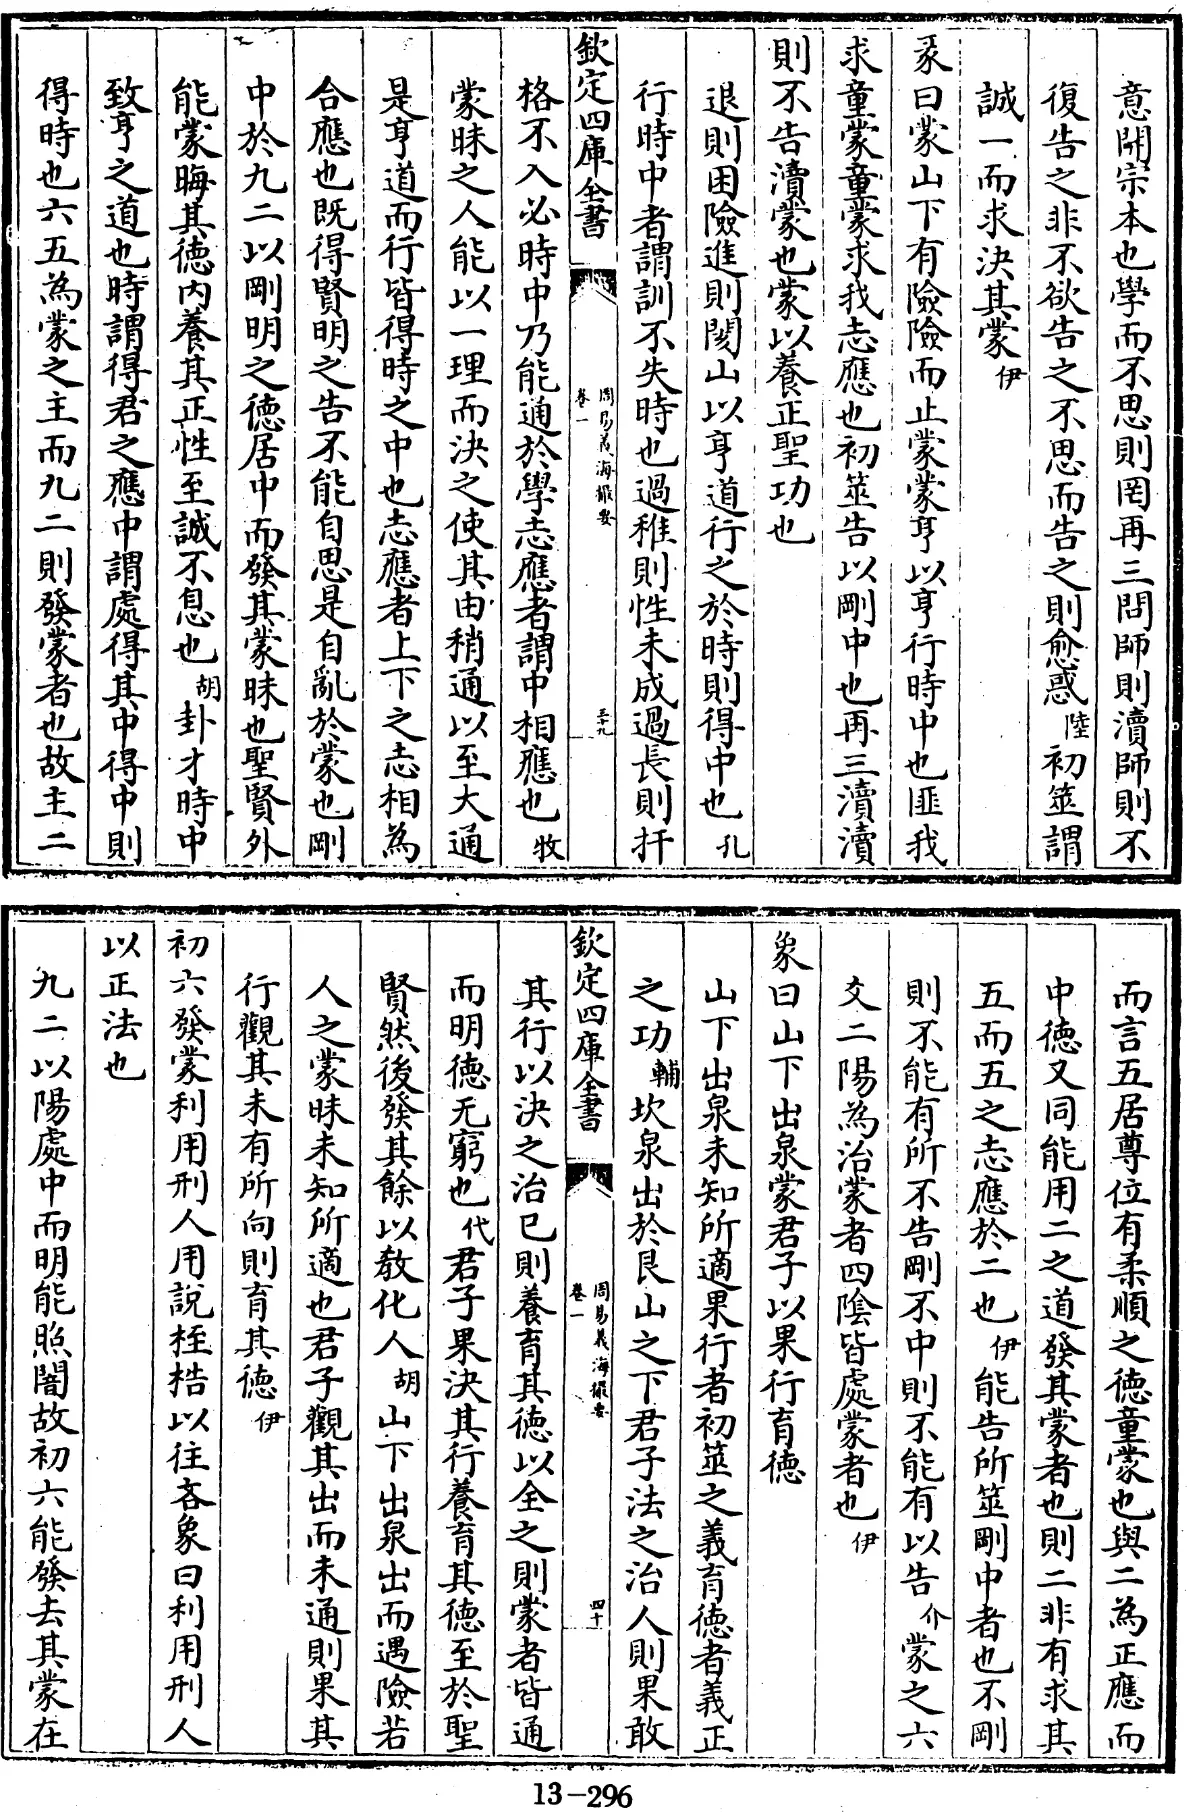 意開宗本也學而不思則罔再三問師則瀆師則不
復告之非不欲告之不思而告之則愈惑陸初筮謂
誠一而求決其蒙伊
彖曰蒙山下有險險而止蒙蒙亨以亨行時中也匪我
求童蒙童蒙求我志應也初筮告以剛中也再三瀆瀆
則不告瀆蒙也蒙以養正聖功也
退則困險進則閡山以亨道行之於時則得中也孔
行時中者謂訓不失時也過稚則性未成過長則扞
欽定四庫全書
周易義海撮要
卷一
三十九
格不入必時中乃能通於學志應者謂中相應也牧
蒙昧之人能以一理而決之使其由稍通以至大通
是亨道而行皆得時之中也志應者上下之志相為
合應也既得賢明之告不能自思是自亂於蒙也剛
中於九二以剛明之德居中而發其蒙昧也聖賢外
能蒙晦其德內養其正性至誠不息也胡卦才時中
致亨之道也時謂得君之應中謂處得其中得中則
得時也六五為蒙之主而九二則發蒙者也故主二
而言五居尊位有柔順之德童蒙也與二為正應而
中德又同能用二之道發其蒙者也則二非有求其
五而五之志應於二也伊能告所筮剛中者也不剛
則不能有所不告剛不中則不能有以告介蒙之六
爻二陽為治蒙者四陰皆處蒙者也伊
象曰山下出泉蒙君子以果行育德
山下出泉未知所適果行者初筮之義育德者義正
之功輔坎泉出於艮山之下君子法之治人則果敢
欽定四庫全書
周易義海撮要
卷一
四十
其行以決之治已則養育其德以全之則蒙者皆通
而明德无窮也代君子果決其行養育其德至於聖
賢然後發其餘以教化人胡山下出泉出而遇險若
人之蒙昧未知所適也君子觀其出而未通則果其
行觀其未有所向則育其德伊
初六發蒙利用刑人用說桎梏以往吝象曰利用刑人
以正法也
九二以陽處中而明能照闇故初六能發去其蒙在
13-296